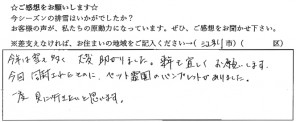 ☆ご感想をお願いします☆
今シーズンの排雪はいかがでしたか？
お客様の声が、私たちの原動力になっています。ぜひ、ご感想をお聞かせ下さい。
※差支えなければ、お住まいの地域をご記入ください→( 江別 市）（ 区）
今年は雪も多く 大変 助かりました。来年も宜しく お願いします。
今日 ペット霊園のパンフレットがありました。
一度 見に行きたいと思います。